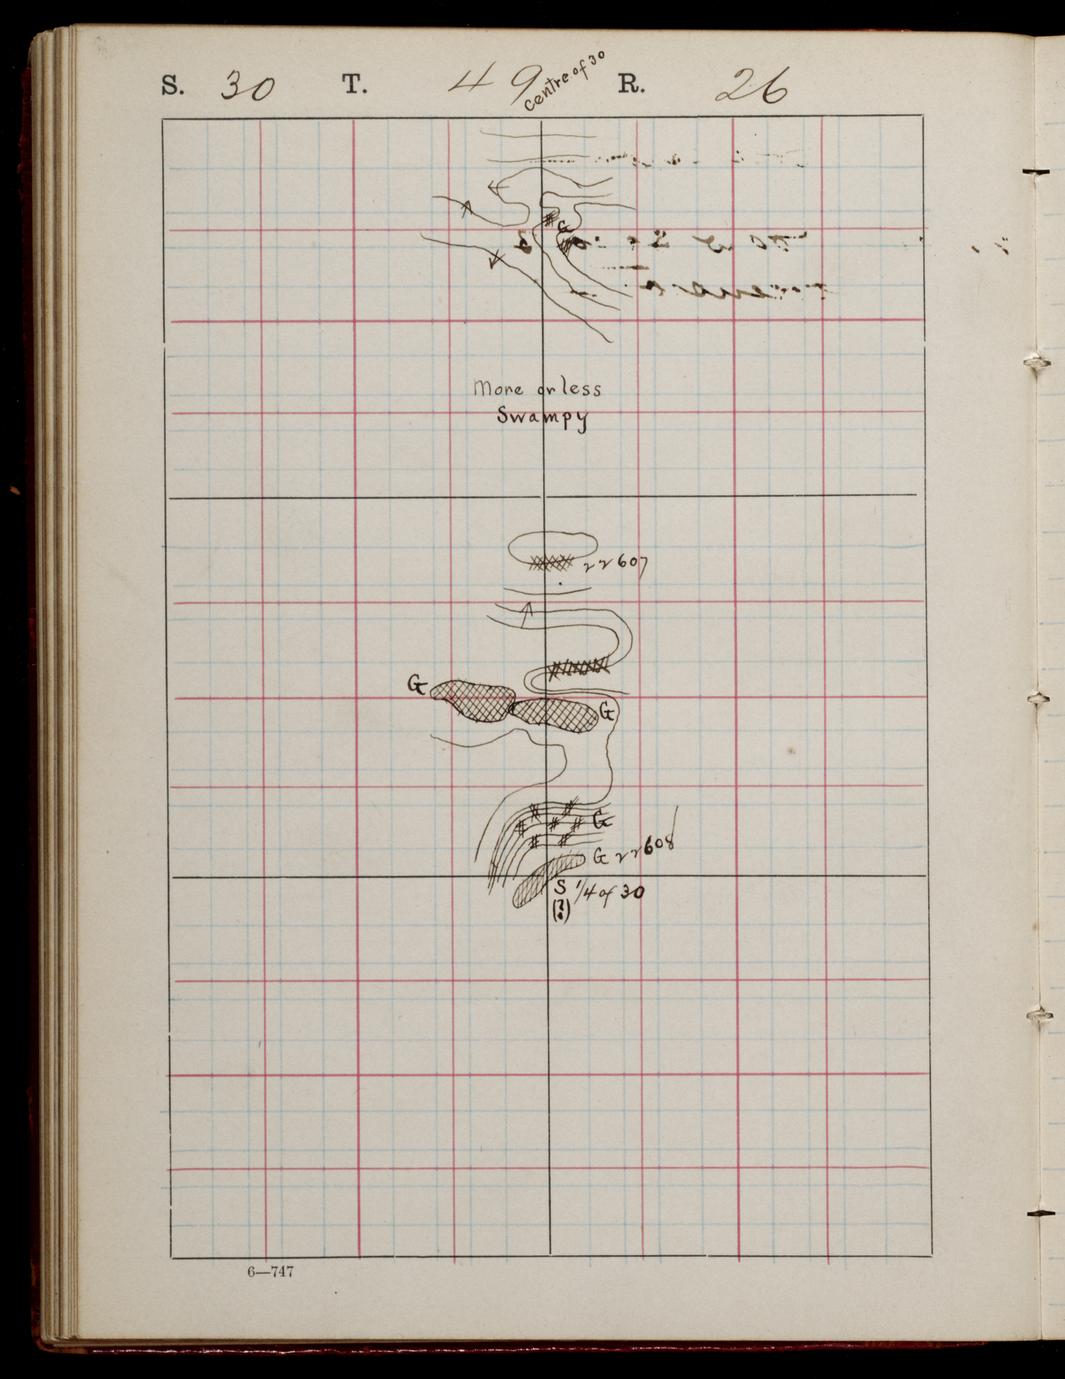 S. 30 T. 49 R. 26
Centre of 30
G
More or less
Swampy
22607
G
G
G
G 22608
S 1/4 of 30
6—747